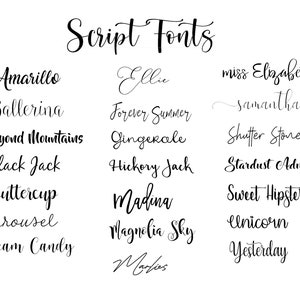 Script Fonts
Amarillo
Ballerina
eyond Mountains
lack Jack
uttercup
arousel
eam Candy
Ellie
Forever Summer
Gingerale
Hickory Jack
Madina
Magnolia Sky
Marlies
miss Elizabe
samantha
Shutter Stone
Stardust Adv
Sweet Hipste
Unicorn
Yesterday